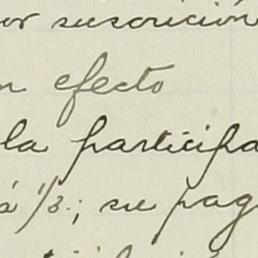 or suscrición
n efecto
la participa
á 1/3.; su pag